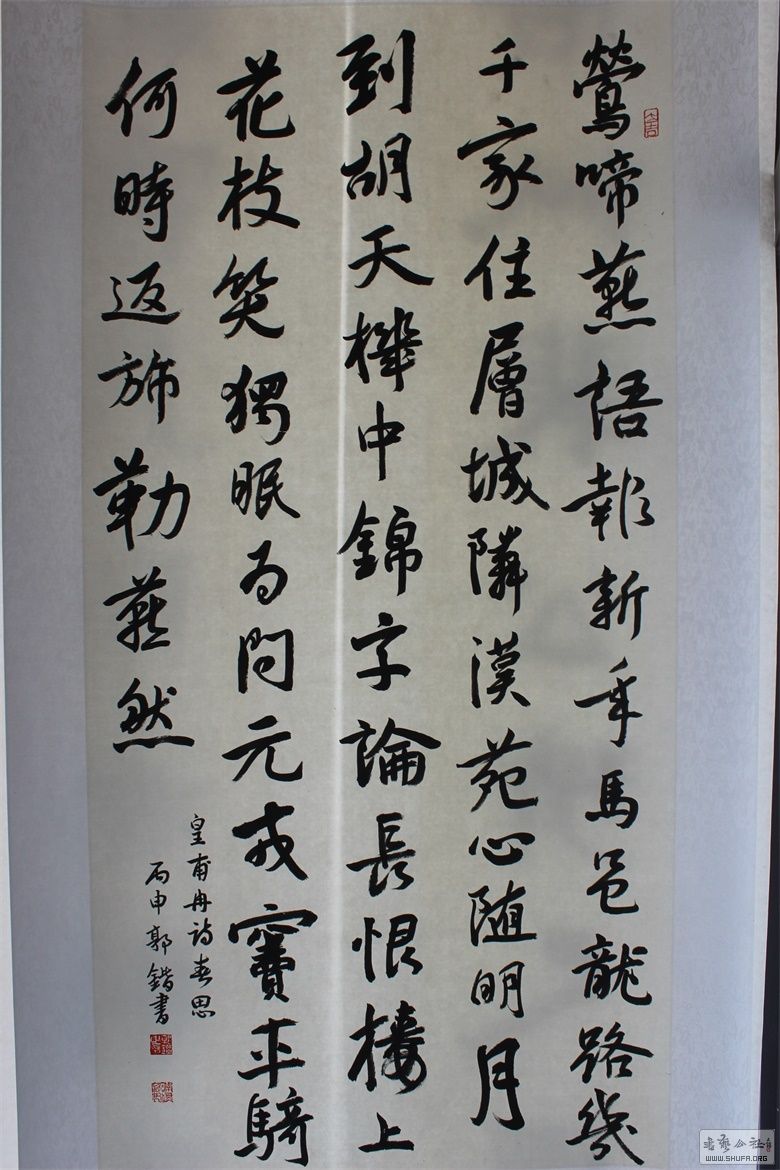 鶯啼燕語報新年馬邑龍路幾
千家住層城隣漢苑心隨明月
到胡天機中錦字論長恨樓上
花枝笑獨眠为問元戎竇車騎
何時返旆勒燕然
皇甫冉詩春思
丙申郭鍇書
書藝公社
WWW.SHUFA.ORG